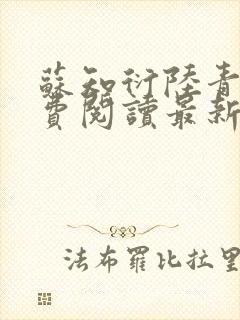 蘇知衍陸青
費閱讀最新
法布羅比拉里